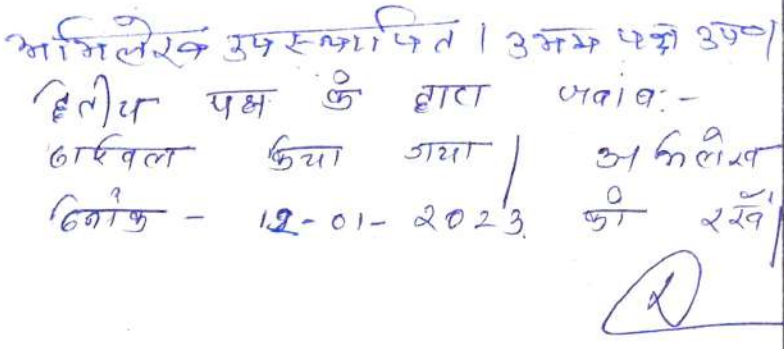 अभिलेख उपस्थापित। उभय पक्ष उप०।
द्वितीय पक्ष के द्वारा जवाब:-
दाखिल किया गया। अभिलेख
दिनांक - 12-01-2023 को रखें।